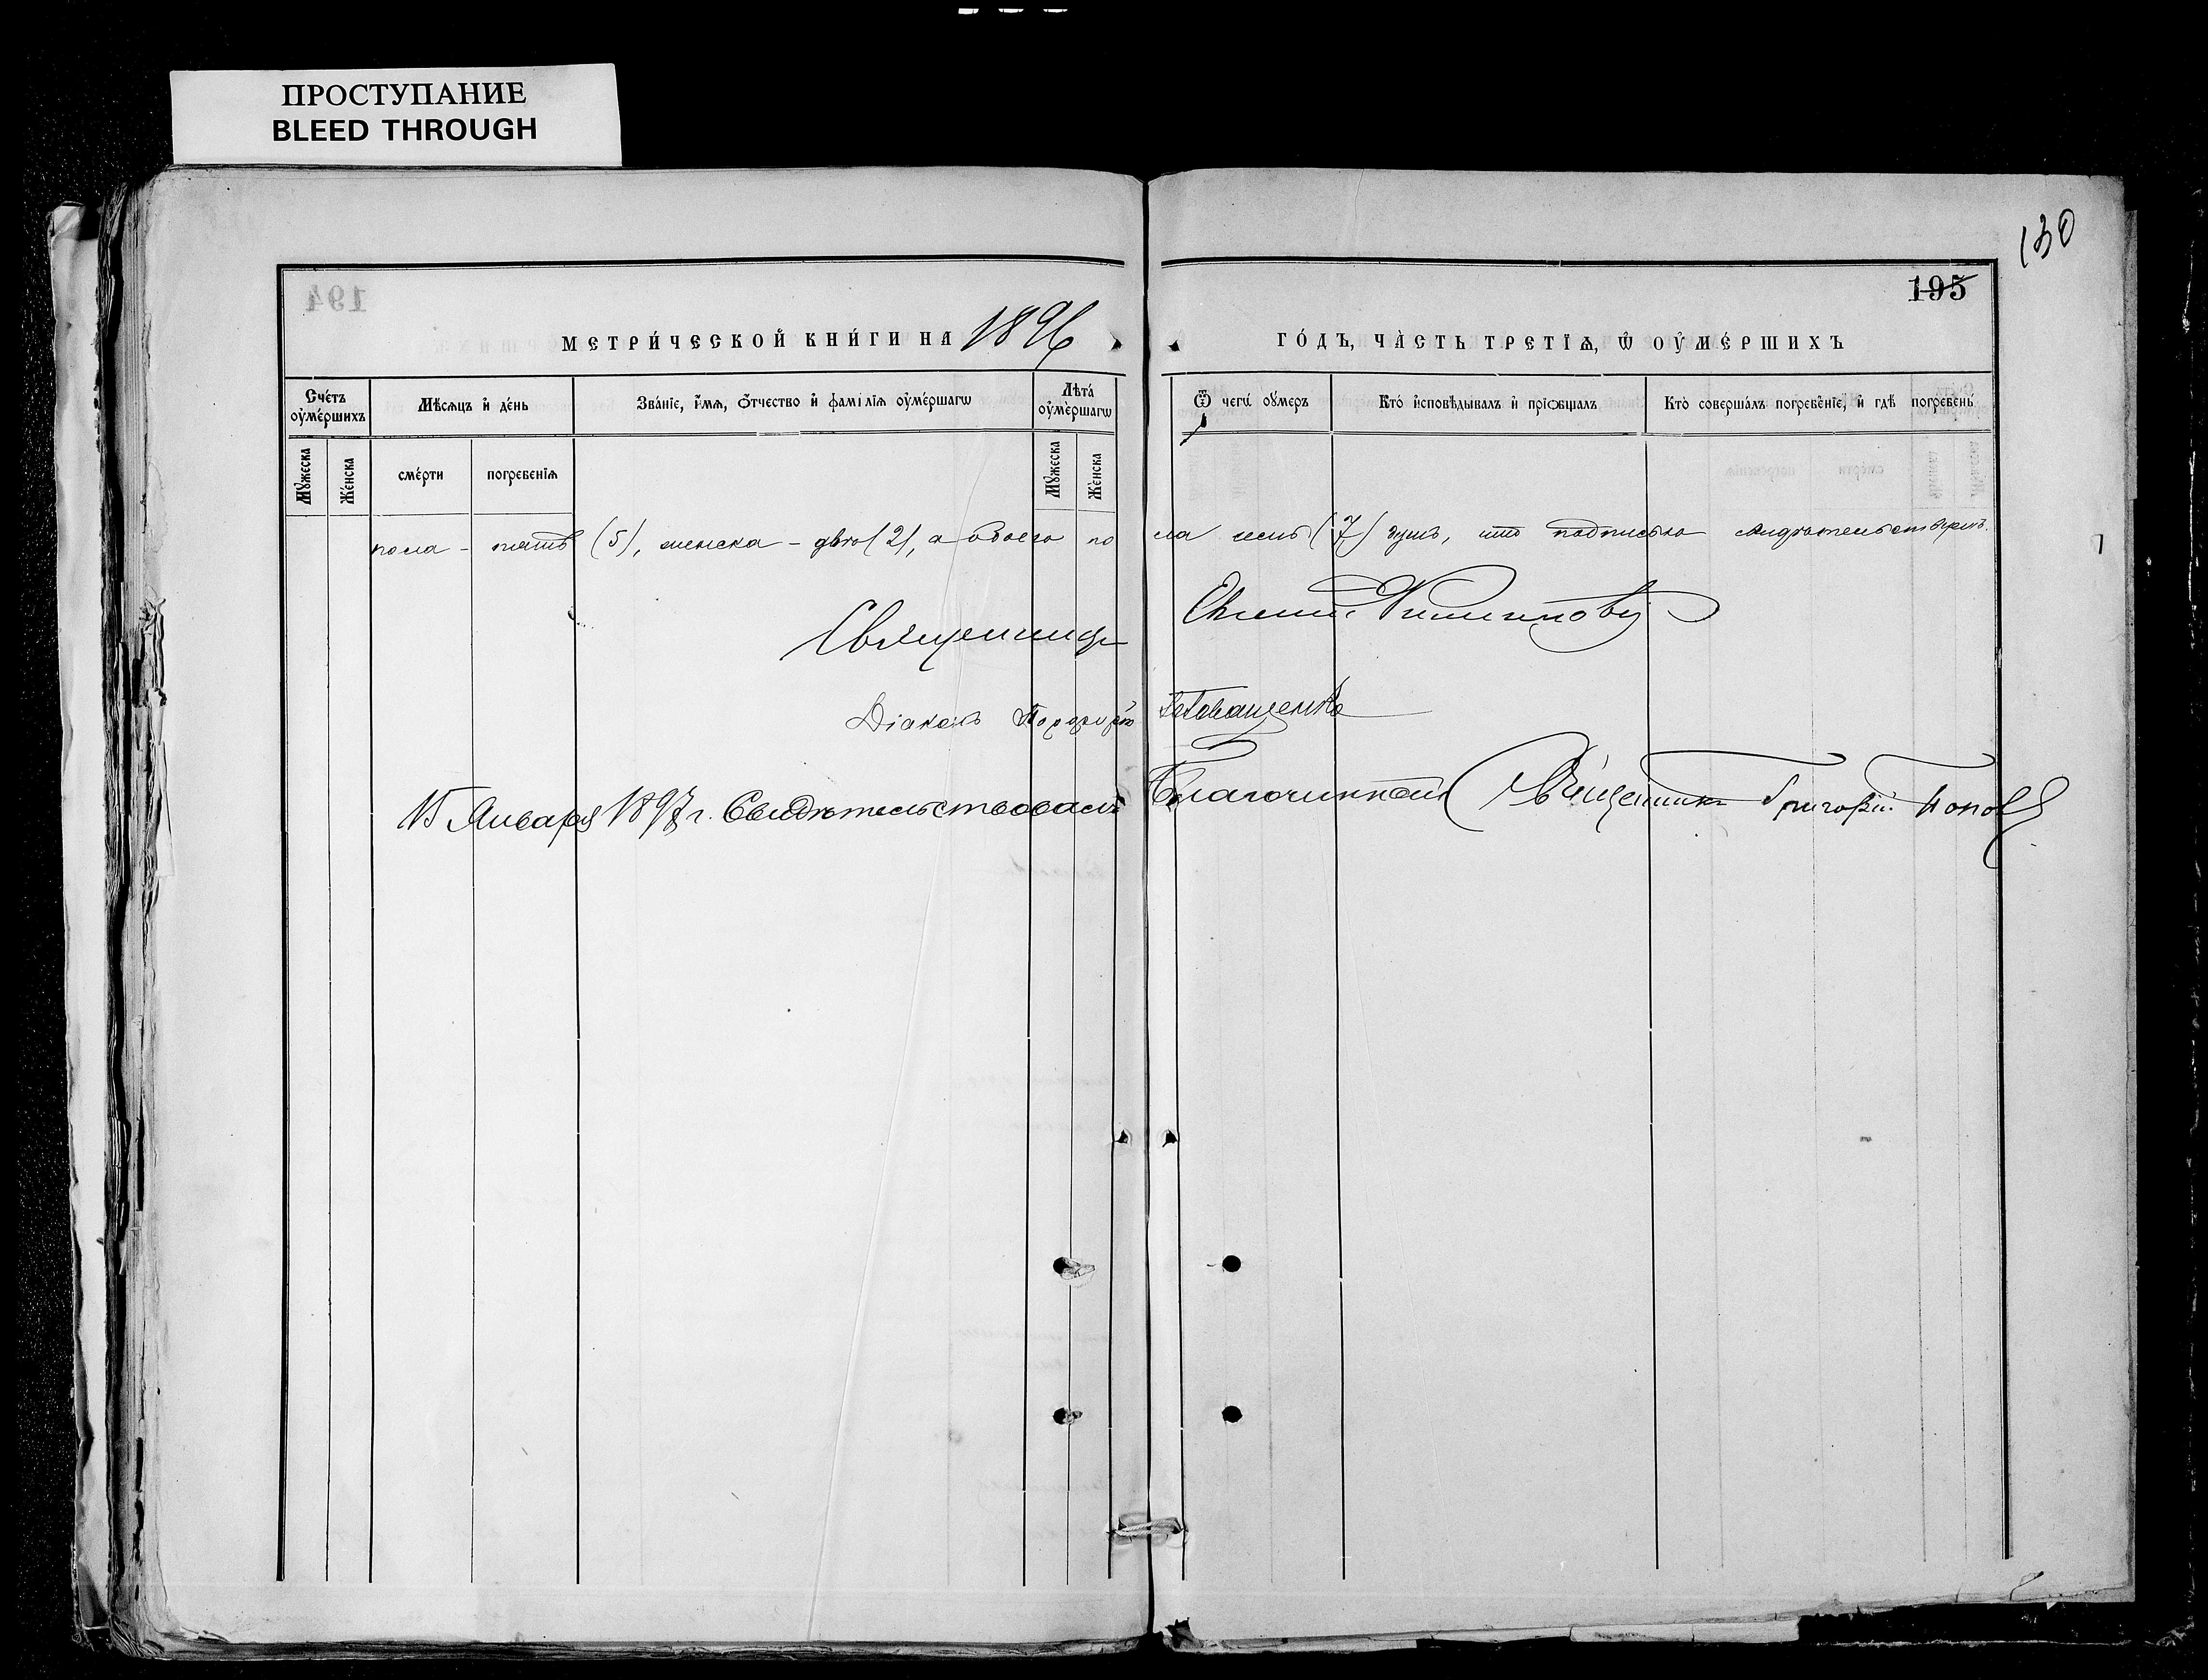 ПРОСТУПАНИЕ
BLEED THROUGH
130
195
194
МЕТРИ́ЧЕСКОЙ КНИ́ГИ НА 1896 ГО́ДЪ, ЧА̀СТЬ ТРЕТІѦ, Ѡ҆ ОУ҆МЕ́РШИХЪ
Сче́тъ оу҆ме́ршихъ
Мѣ́сѧцъ и҆ де́нь
Зва́нїе, и҆́мѧ, ѻ҆́тчество и҆ фамі́лїѧ оу҆ме́ршагѡ
Лѣта́ оу҆ме́ршагѡ
Ѿ чегѡ̀ оу҆́меръ
Кто̀ и҆сповѣ́дывалъ и҆ прїѡбща́лъ
Кто̀ соверша́лъ погребе́нїе, и҆ гдѣ̀ погребе́нъ
Мꙋ́жеска
Же́нска
сме́рти
погребенїѧ
Мꙋ́жеска
Же́нска
пола - пять (5), женска - две (2), а обоего пола семь (7) душъ, что подписью свидѣтельствуемъ.
Священникъ Филипповъ
Діаконъ Порфирій
15 Января 1897 г. Свидѣтельствовалъ Благочинный Священникъ Григорій Поповъ